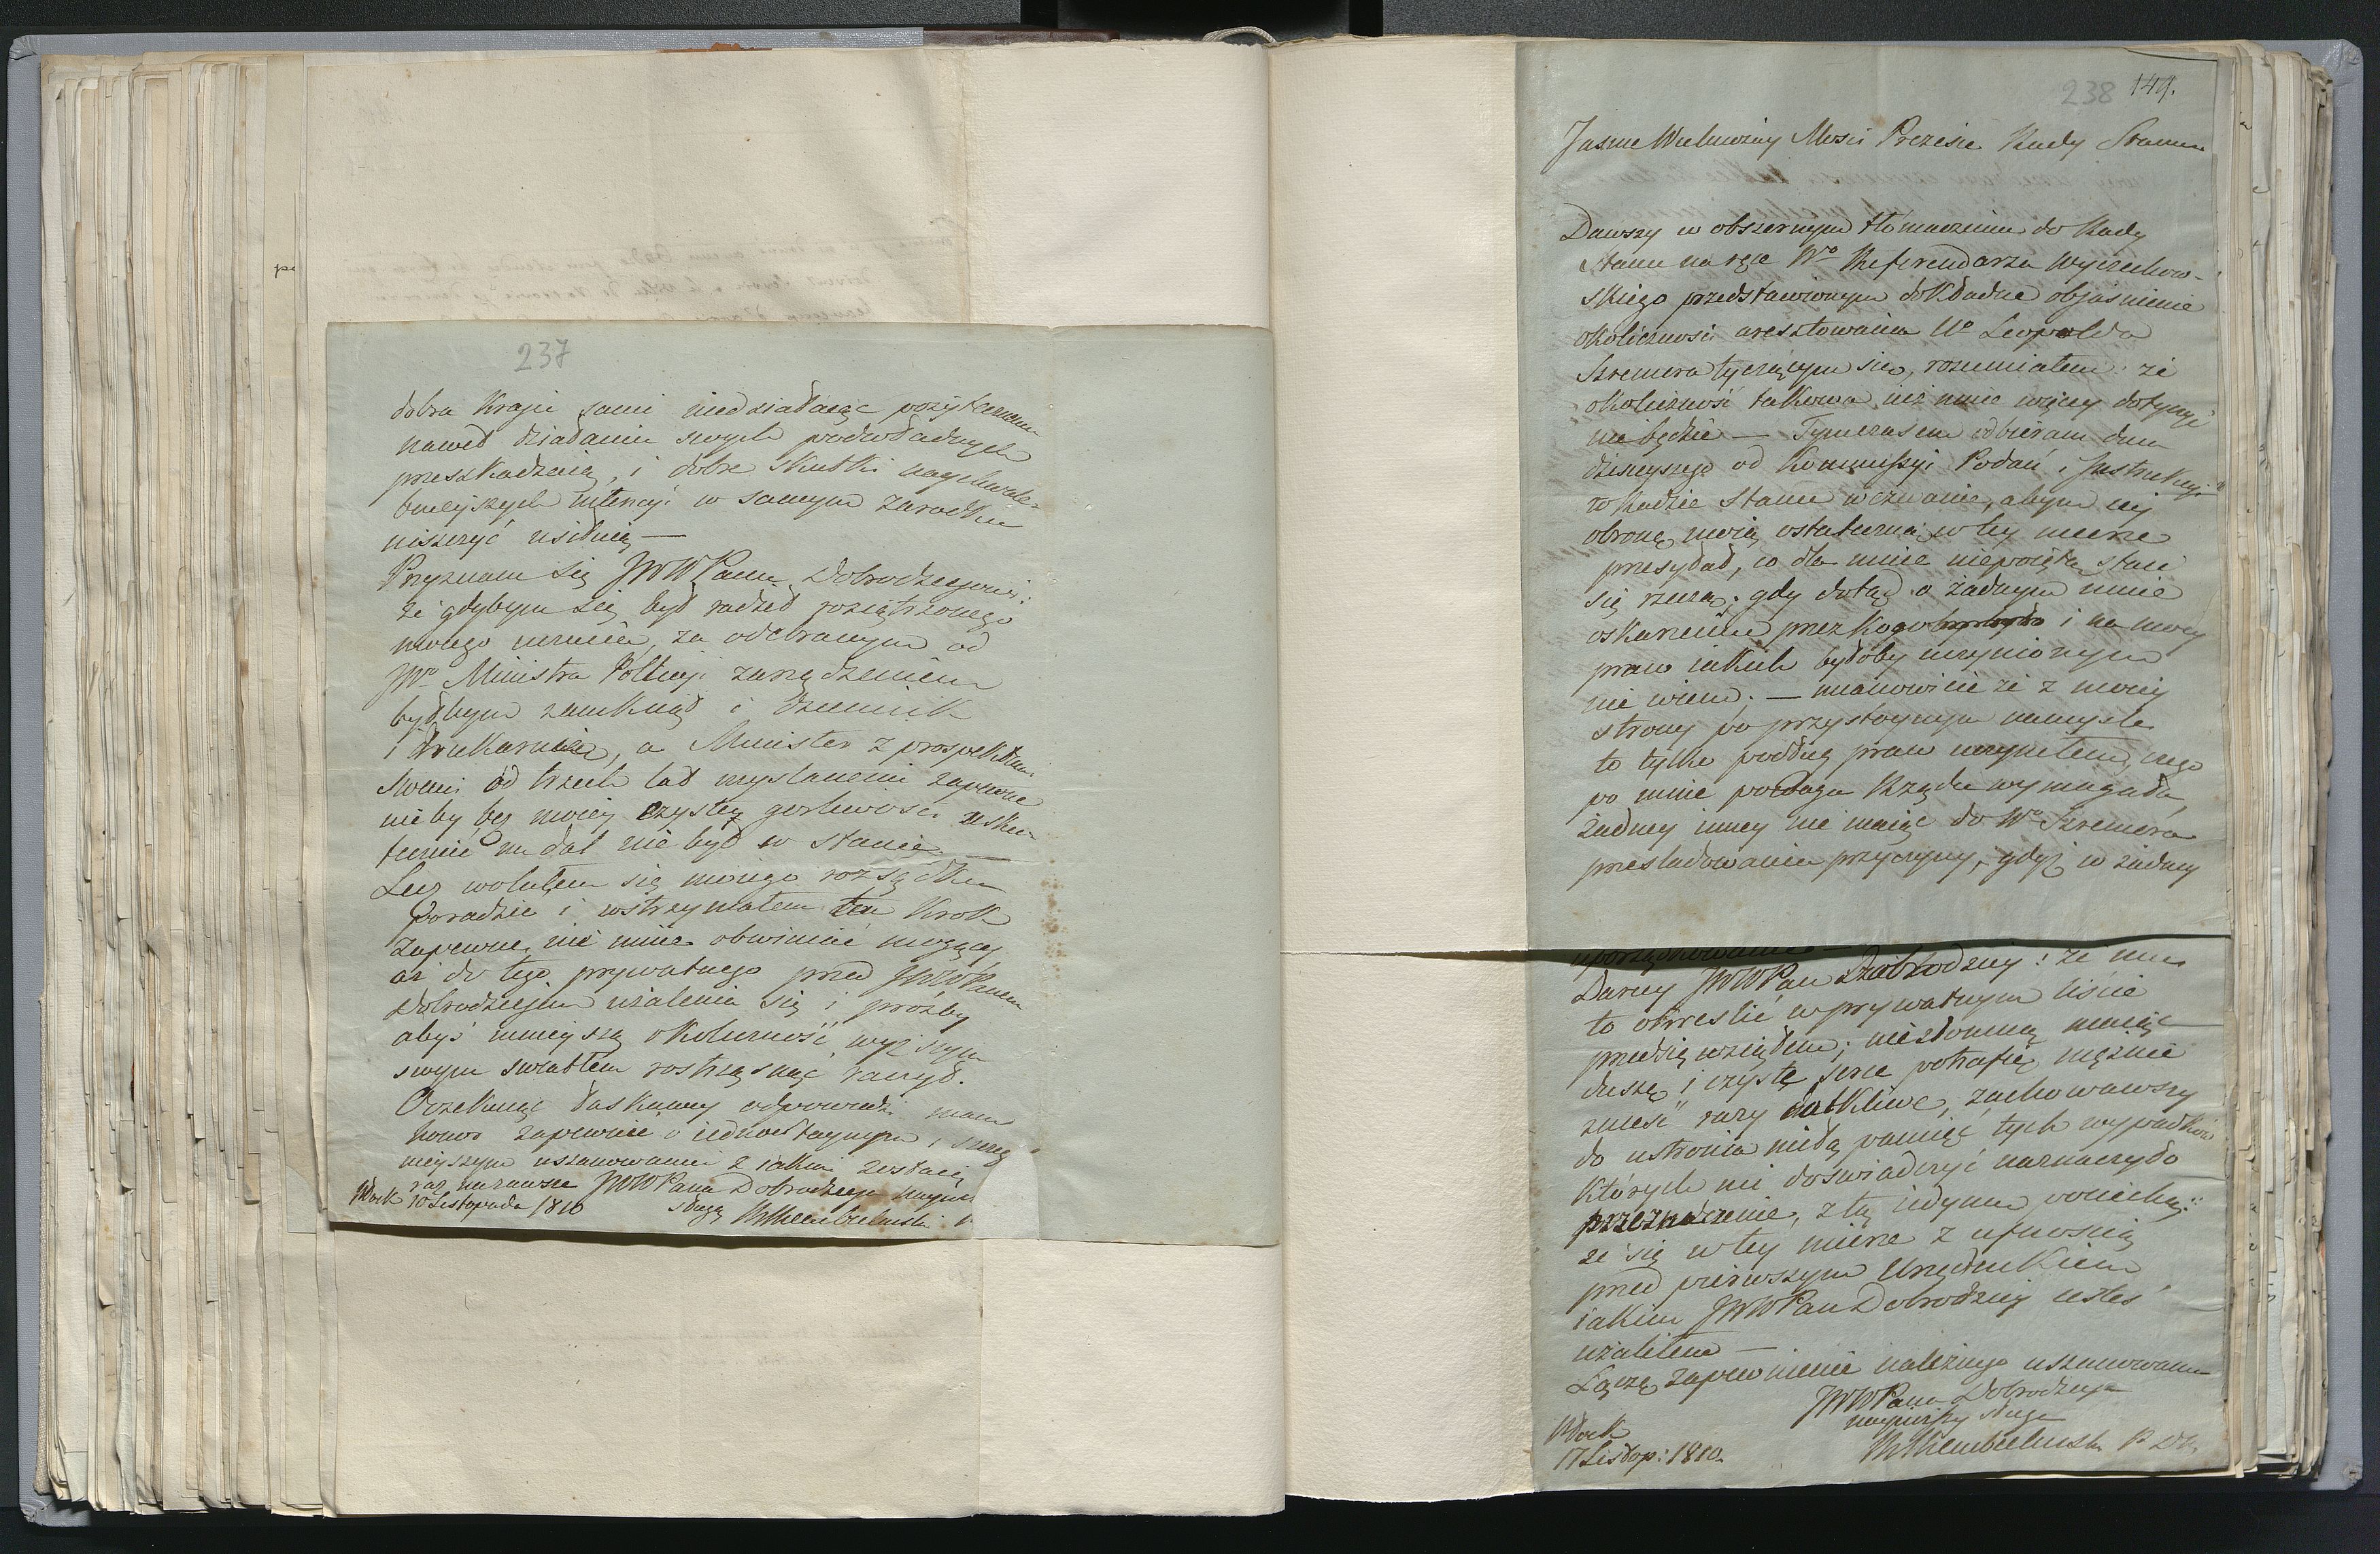 237
dobra Kraju sami niedziałaiąc pożytecznemu
nawet działaniu swych podwładnych
przeszkadzaią, i dobre skutki naychwale-
bnieyszych intencyi w samym zarodku
niszczyć usiłuią —
Przyznam się JWWPanu Dobrodzieiowi:
że gdybym się był radził roziątrzonego
moiego umysłu, za odebranym od
JWo Ministra Policyi zarządzeniem
byłbym zamknął i dziennik
i drukarnię, a Minister z prospektami
swemi od trzech lat wysłanemi zapewne
nie by bez moiey czystey gorliwości usku-
tecznić nadal nie był w stanie —
Lecz wolałem się moiego rozsądku
poradzić i wstrzymałem ten krok
zapewne nie mnie obwiniać mogący
aż do tego prywatnego przed JWWPanem
Dobrodzieiem użalenia się i prozby
abyś ninieyszą okoliczność wyższym
swym światłem rostrząsnąć raczył.
Oczekuiąc łaskawey odpowiedzi mam
honor zapewnić o iednostaynym i
nieyszym uszanowaniu z iakim zostaię
raz na zawsze JWWPana Dobrodzieia
Płock 10 Listopada 1810 sługą Rembieliński
238 149.
Jasnie Wielmożny Mości Prezesie Rady Stanu
Dawszy w obszernym tłomaczeniu do Rady
Stanu na ręce Wo Referendarza Wyczechow-
skiego przedstawionym dokładne obiaśnienie
okoliczności aresztowania Wo Leopolda
Szremera tyczącym się, rozumiałem: że
okoliczność takowa iuż mnie więcey dotyczyć
nie będzie — Tymczasem odbieram dnia
dzisieyszego od Kommissyi Podań i Instrukcyi
w Radzie Stanu wezwanie, abym iey
obronę moią ostateczną w tey mierze
przesłał, co dla mnie niepoiętą staie
się rzeczą; gdy dotąd o żadnym mnie
oskarżeniu przez kogo i na mocy
praw iakich byłoby uczynionym
nie wiem; — mianowicie że z moiey
strony po przystoynym namyśle
to tylko podług praw uczyniłem, czego
po mnie powaga Rządu wymagała,
żadney inney nie maiąc do Wo Szremera
prześladowania przyczyny, gdyż w żadney
uporządkowania —
Daruy JWWPan Dobrodziey: że mu
to okreslić w prywatnym liście
przedsięwziąłem; niezłomną maiąc
duszę i czyste serce potrafię mężnie
znieść razy dotkliwe, zachowawszy
do ustronia miłą pamięć tych wypadków
których mi doświadczyć naznaczyło
przeznaczenie, z tą iedyną pociechą:
że się w tey mierze z ufnością
przed pierwszym Urzędnikiem
iakim JWWPan Dobrodziey iesteś
użaliłem —
Łączę zapewnienie należnego uszanowania
JWWPana Dobrodzieia
nayniższy sługa
Płock
17 Listop: 1810. Rembieliński P. D. P.